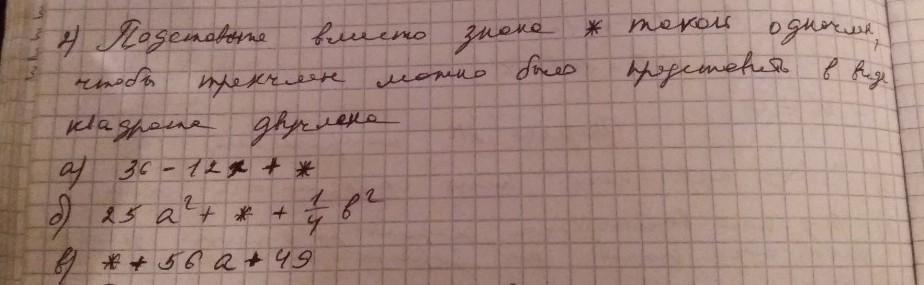 2) Подставьте вместо знака * такой одночлен,
чтобы трехчлен можно было представить в виде
квадрата двучлена
а) 36 - 12x + *
б) 25 a² + * + 1/4 b²
в) * + 56 a + 49